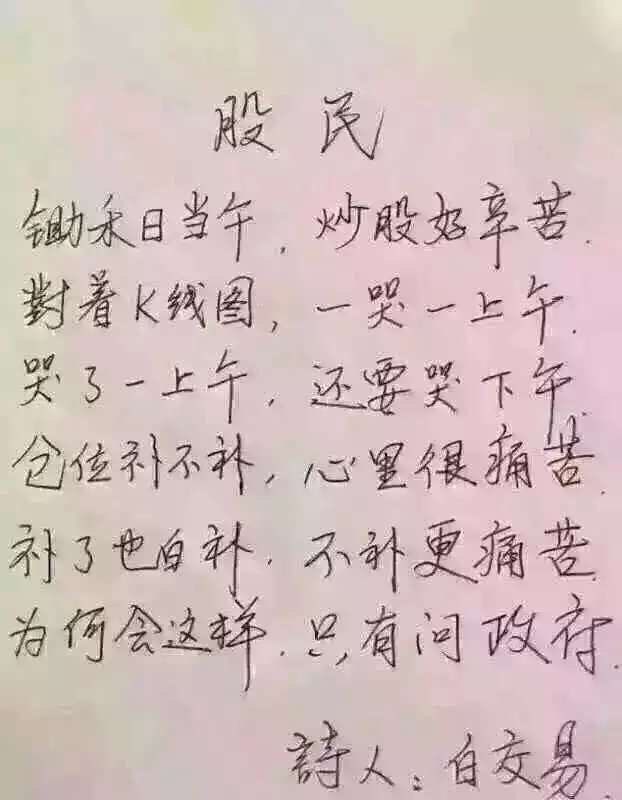 股民
锄禾日当午,炒股好辛苦.
對着K线图,一哭一上午.
哭了一上午,还要哭下午
仓位补不补,心里很痛苦.
补了也白补.不补更痛苦.
为何会这样.只有问政府.
詩人:白交易.